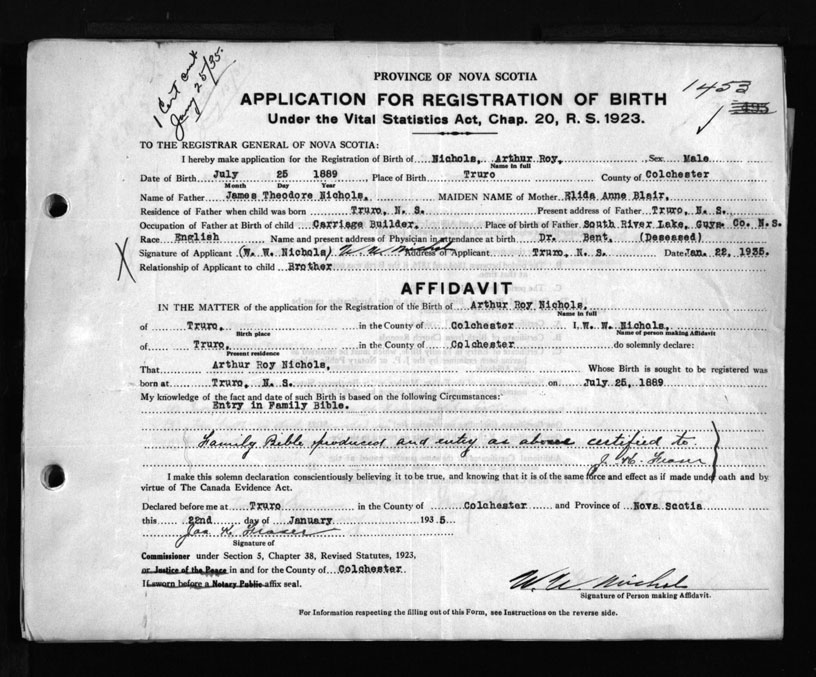 1 Cert sent
Jany 25/35.
PROVINCE OF NOVA SCOTIA
1453
495
APPLICATION FOR REGISTRATION OF BIRTH
Under the Vital Statistics Act, Chap. 20, R. S. 1923.
TO THE REGISTRAR GENERAL OF NOVA SCOTIA:
I hereby make application for the Registration of Birth of Nichols, Arthur Roy, Sex Male
Name in full
Date of Birth July 25 1889 Place of Birth Truro County of Colchester
Month Day Year
Name of Father James Theodore Nichols. MAIDEN NAME of Mother Elida Anne Blair.
Residence of Father when child was born Truro, N. S. Present address of Father Truro, N. S.
Occupation of Father at Birth of child Carriage Builder. Place of birth of Father South River Lake, Guys. Co. N.S.
Race English Name and present address of Physician in attendance at birth Dr. Bent. (Deseased)
X Signature of Applicant (W. W. Nichols) W. W. Nichols Address of Applicant Truro, N. S. Date Jan. 22, 1935.
Relationship of Applicant to child Brother
AFFIDAVIT
IN THE MATTER of the application for the Registration of the Birth of Arthur Roy Nichols,
Name in full
of Truro, in the County of Colchester I, W. W. Nichols,
Birth place Name of person making Affidavit
of Truro, in the County of Colchester do solemnly declare:
Present residence
That Arthur Roy Nichols, Whose Birth is sought to be registered was
born at Truro, N. S. on July 25, 1889
My knowledge of the fact and date of such Birth is based on the following Circumstances:
Entry in Family Bible.
Family Bible produced and entry as above certified to
J. K. Fraser
I make this solemn declaration conscientiously believing it to be true, and knowing that it is of the same force and effect as if made under oath and by
virtue of The Canada Evidence Act.
Declared before me at Truro in the County of Colchester and Province of Nova Scotia
this 22nd day of January 1935
Jas K Fraser
Signature of
Commissioner under Section 5, Chapter 38, Revised Statutes, 1923,
or Justice of the Peace in and for the County of Colchester
If sworn before a Notary Public affix seal.
W. W. Nichols
Signature of Person making Affidavit.
For Information respecting the filling out of this Form, see Instructions on the reverse side.